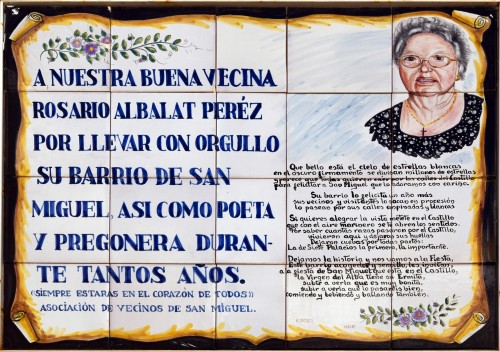 A NUESTRA BUENA VECINA
ROSARIO ALBALAT PERÉZ
POR LLEVAR CON ORGULLO
SU BARRIO DE SAN
MIGUEL, ASI COMO POETA
Y PREGONERA DURAN-
TE TANTOS AÑOS.
"SIEMPRE ESTARAS EN EL CORAZÓN DE TODOS"
ASOCIACIÓN DE VECINOS DE SAN MIGUEL.
Que bello está el cielo de estrellas blancas
en el oscuro firmamento se divisan millones de estrellas
y parece que todas quieren salir por las calles del Castillo
para felicitar a San Miguel que lo adoramos con cariño.
Su barrio lo felicita un año más
sus vecinos y visitantes lo sacan en procesión
lo pasean por sus calles empinadas y blancas
Si quieres alegrar la vista métete en el Castillo
que con el aire marinero se te abren los sentidos.
Por saber cuantas razas pasaron por el Castillo,
vivieron aquí y dejaron sus huellas
Dejaron cuevas por todas partes:
La de Siete Palacios la primera, la importante.
Dejamos la história y nos vamos a la Fiesta,
Este barrio acogedor y sencillo, les invitamos
a la fiesta de San Miguel que está en el Castillo,
la Virgen del Alba tiene su Ermita,
subir a verla que es muy bonita,
subir a verla que lo pasareis bien,
comiendo y bebiendo y bailando también.